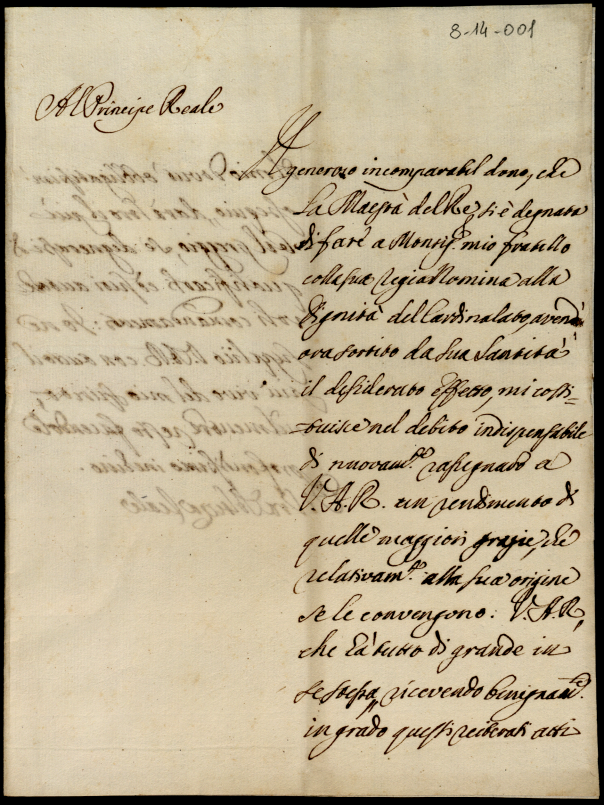 8-14-001
Al Principe Reale
Il generoso incomparabil dono, che
La Maestà del Re, si è degnata
di fare à Monsig.r mio fratello
colla sua regia Nomina alla
Dignità del Cardinalato, avendo
ora sortito da Sua Santità
il desiderato effetto, mi costi-
tuisce nel debito indispensabile
di nuovam.te rassegnare a
V. A. R. un rendimento di
quelle maggiori grazie, che
relativam.te alla sua origine
se le convengono: V. A. R.,
che hà tutto di grande in
se stessa, ricevendo benignam.te
in grado questi reiterati atti